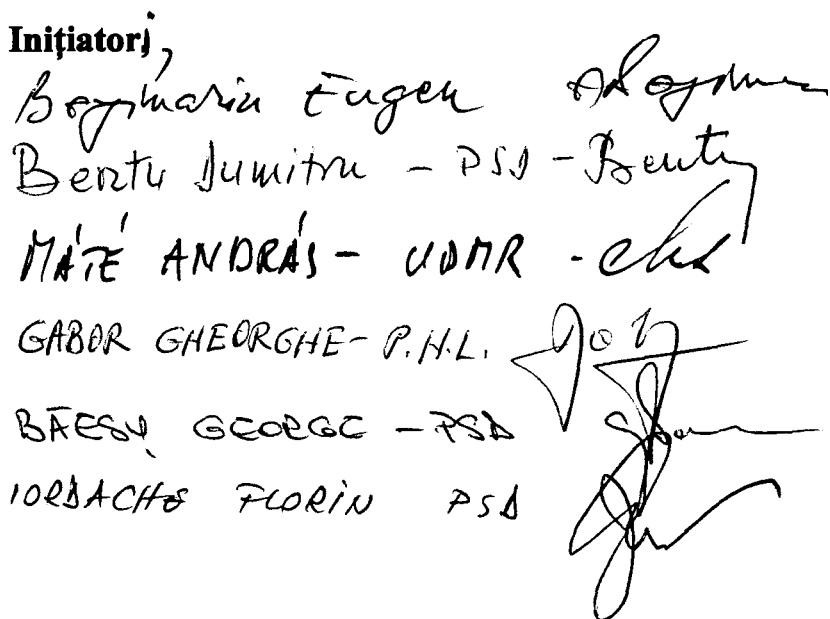 Inițiatori,
Eugen
Bentu Dumitru - PSD - Bentu
MÁTÉ ANDRÁS - UDMR -
GABOR GHEORGHE - P.N.L.
BĂEȘU GEORGE - PSD
IORDACHE FLORIN PSD